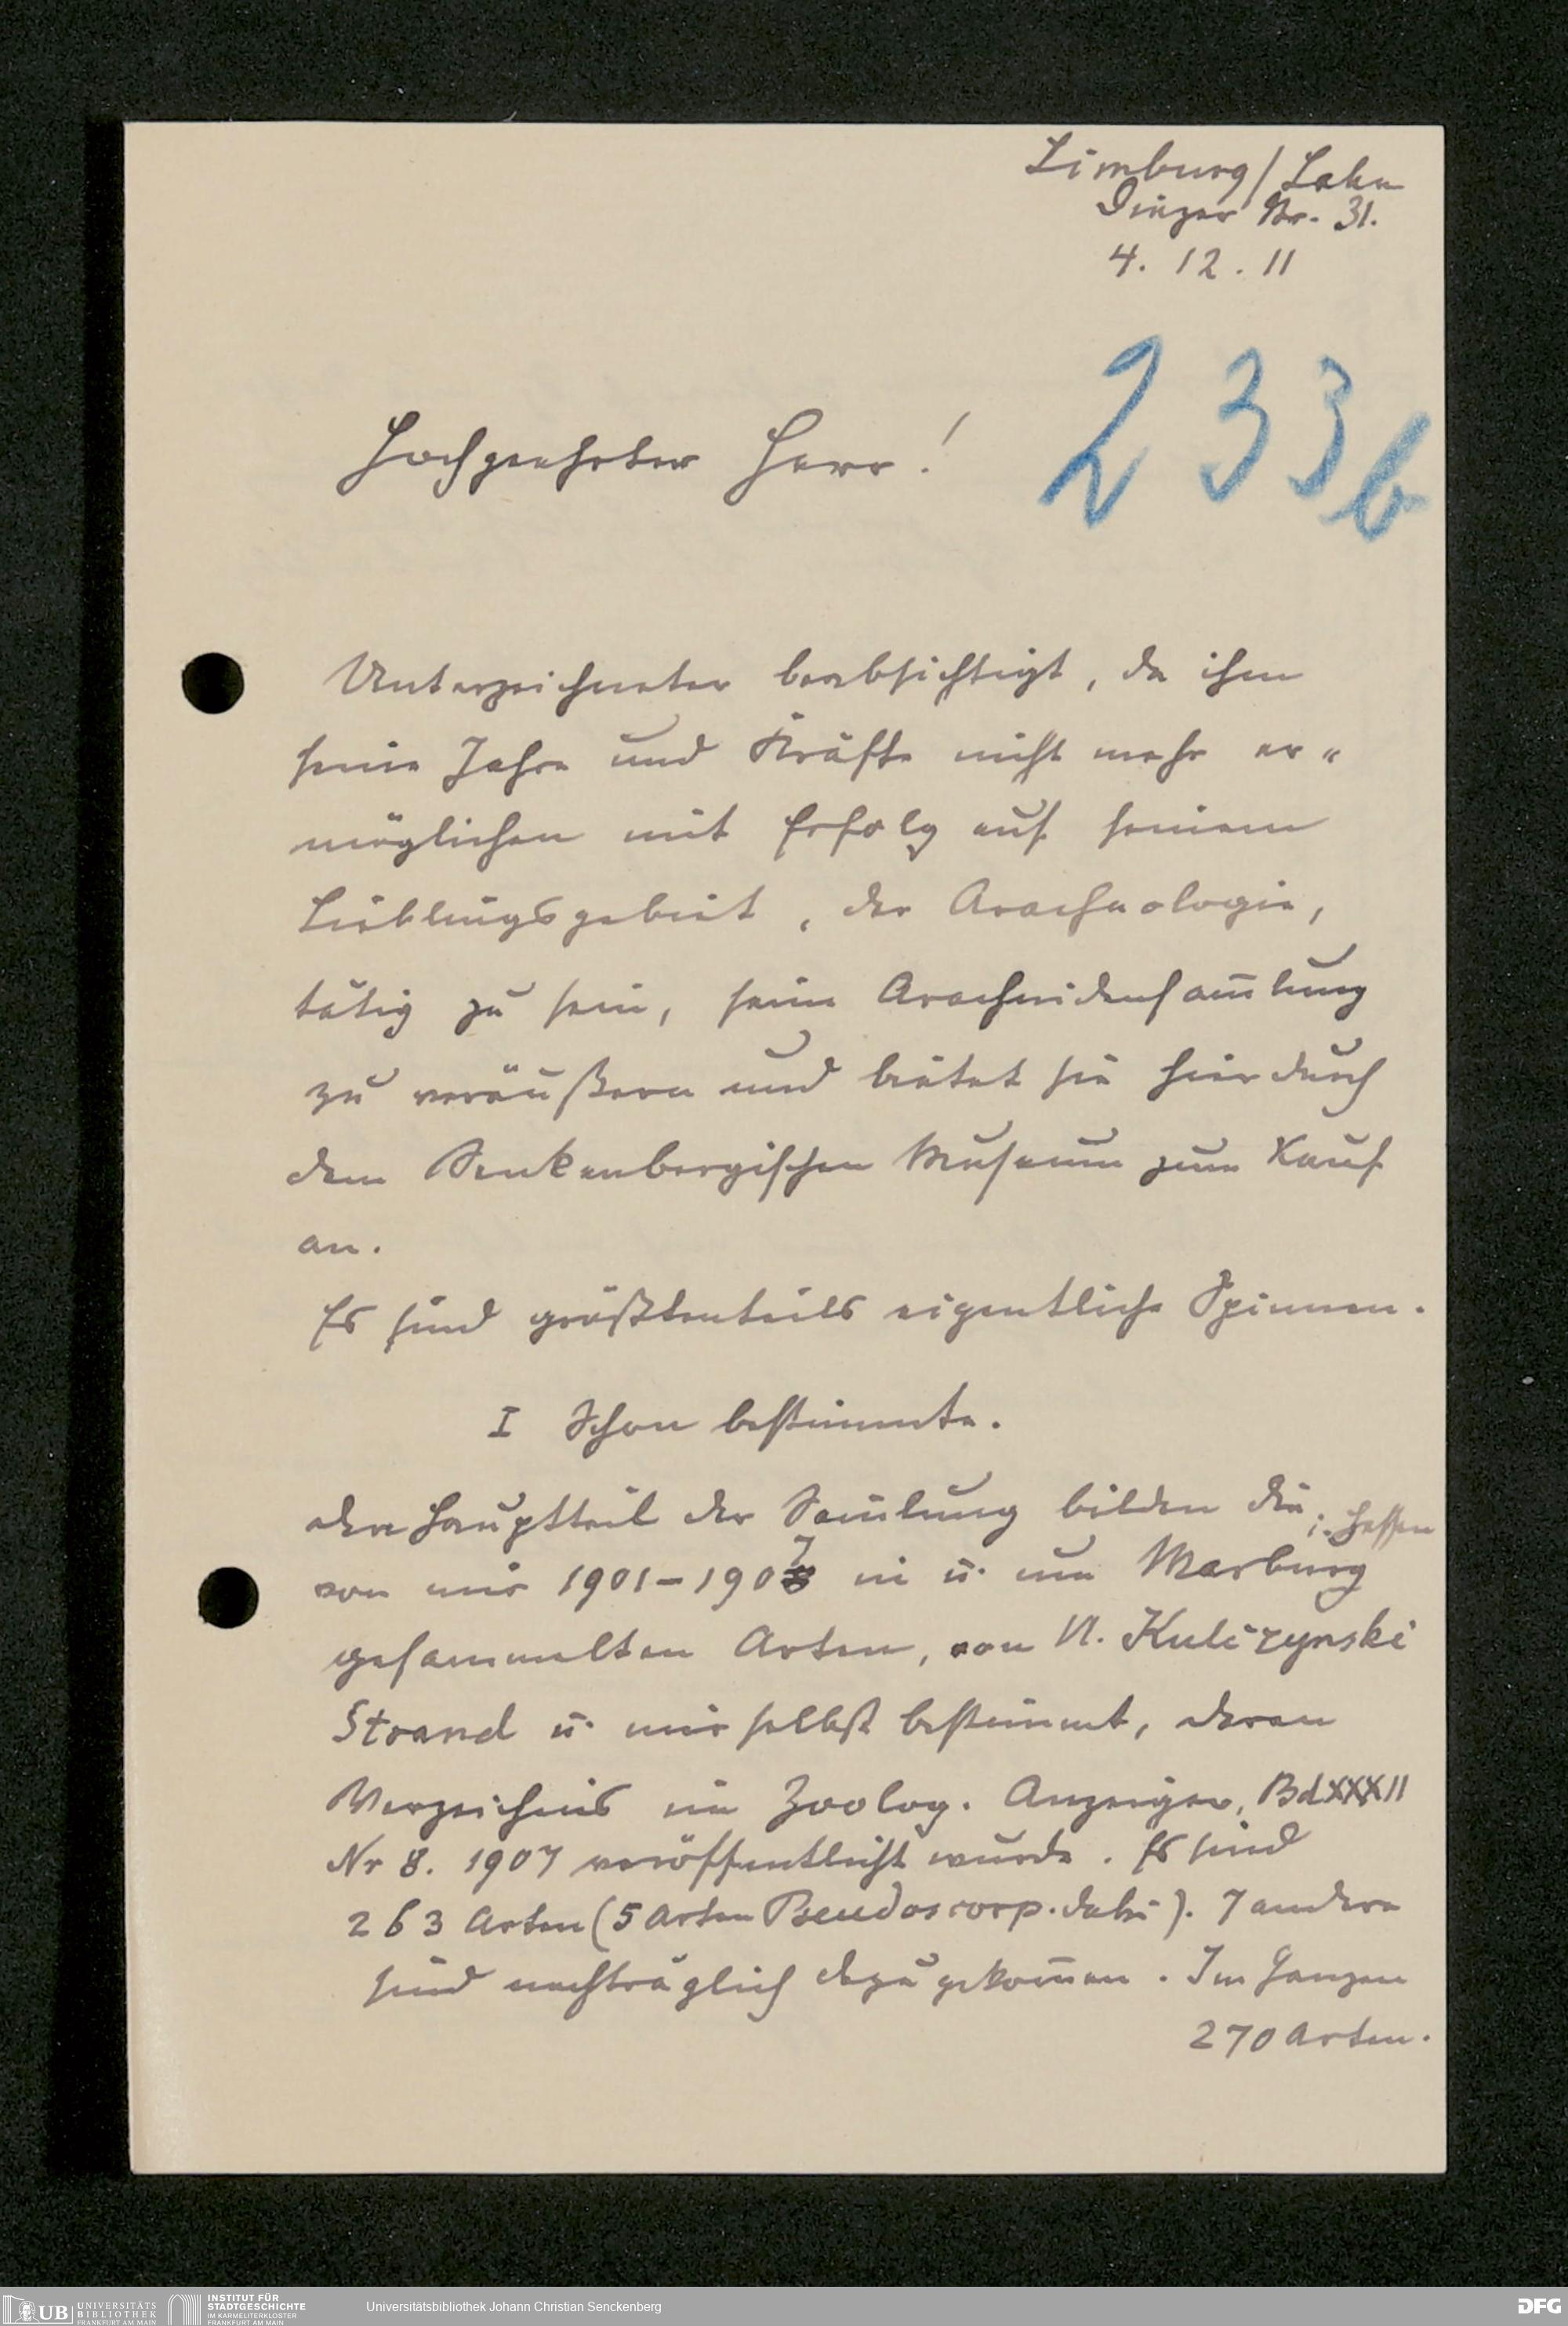 Limburg/Lahn
Diezer Str. 31.
4. 12. 11
233b
Hochgeehrter Herr!
Unterzeichneter beabsichtigt, da ihm
seine Jahre und Kräfte nicht mehr er-
möglichen mit Erfolg auf seinem
Lieblingsgebiet, der Arachnologie,
tätig zu sein, seine Arachnidensam̄lung
zu veräußern und bietet sie hierdurch
dem Senkenbergischen Museum zum Kauf
an.
Es sind größtenteils eigentliche Spinnen.
I Schon bestimmte.
den Hauptteil der Sam̄lung bilden die
i. Hessen
von mir 1901–1907 in u. um Marburg
gesammelten Arten, von Kulczynski
Strand u. mir selbst bestimmt, deren
Verzeichnis im Zoolog. Anzeiger, Bd XXXII
Nr 8. 1907 veröffentlicht wurde. Es sind
263 Arten (5 Arten Pseudoscorp. dabei). 7 andere
sind nachträglich dazu gekom̄en. Im Ganzen
270 Arten.
UB UNIVERSITÄTS
BIBLIOTHEK
FRANKFURT AM MAIN
INSTITUT FÜR
STADTGESCHICHTE
IM KARMELITERKLOSTER
FRANKFURT AM MAIN
Universitätsbibliothek Johann Christian Senckenberg
DFG